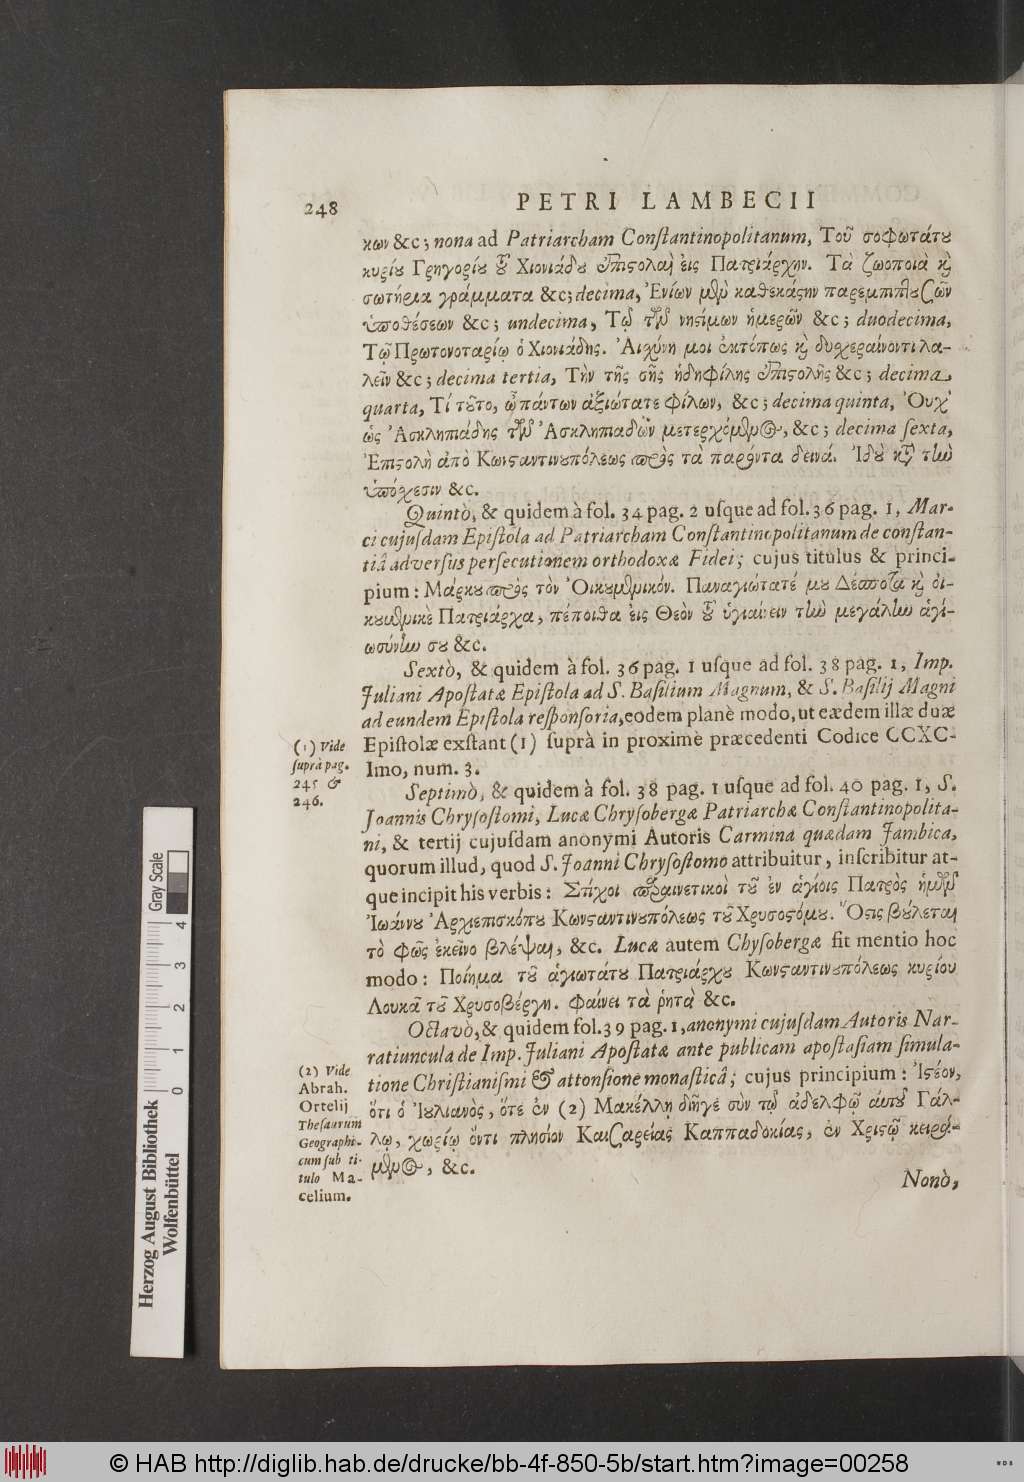 248
PETRI LAMBECII
κων &c; nona ad Patriarcham Conſtantinopolitanum, Τοῦ σοφωτάτȣ
κυρίȣ Γρηγορίȣ τοῦ Χιονιάδȣ ἐπιϛολαὶ εἰς Πατριάρχην. Τὰ ζωοποιὰ καὶ
σωτήρια γράμματα &c; decima, Ἐνίων μὲν καθεκάϛην παρεμπιπλȣσῶν
ὑποθέσεων &c; undecima, Τῷ τῶν νησίμων ἡμερῶν &c; duodecima,
Τῷ Πρωτονοταρίῳ ὁ Χιονιάδης. Αἰχύνη μοι ἐκτόπως καὶ δυχεραίνοντι λα-
λεῖν &c; decima tertia, Τὴν τῆς σῆς ἡδηφίλης ἐπιϛολῆς &c; decima
quarta, Τί τȣ͂το, ὦ πάντων ἀξιώτατε φίλων, &c; decima quinta, Οὐχ'
ὡς Ἀσκληπιάδης τῶν Ἀσκληπιαδῶν μετερχόμενος, &c; decima ſexta,
Ἐπιϛολὴ ἀπὸ Κωνϛαντινȣπόλεως πρὸς τὰ παρόντα δεινά. Ἰδȣ̀ κατὰ τὴν
ὑπόχεσιν &c.
Quintò, & quidem à fol. 34 pag. 2 uſque ad fol. 36 pag. 1, Mar-
ci cujuſdam Epiſtola ad Patriarcham Conſtantinopolitanum de conſtan-
tiâ adverſus perſecutionem orthodoxæ Fidei; cujus titulus & princi-
pium: Μάρκȣ πρὸς τὸν Οἰκȣμενικόν. Παναγιώτατέ μȣ Δέσποτα καὶ οἰ-
κȣμενικὲ Πατριάρχα, πέποιθα εἰς Θεὸν τοῦ ὑγιαίνειν τὴν μεγάλην ἁγι-
ωσύνην σȣ &c.
Sextò, & quidem à fol. 36 pag. 1 uſque ad fol. 38 pag. 1, Imp.
Juliani Apoſtatæ Epiſtola ad S. Baſilium Magnum, & S. Baſilij Magni
ad eundem Epiſtola reſponſoria, eodem planè modo, ut eædem illæ duæ
Epiſtolæ exſtant (1) ſuprà in proximè præcedenti Codice CCXC-
Imo, num. 3.
(1) Vide
ſuprà pag.
245 &
246.
Septimò, & quidem à fol. 38 pag. 1 uſque ad fol. 40 pag. 1, S.
Joannis Chryſoſtomi, Lucæ Chryſobergæ Patriarchæ Conſtantinopolita-
ni, & tertij cujuſdam anonymi Autoris Carmina quædam Jambica,
quorum illud, quod S. Joanni Chryſoſtomo attribuitur, inſcribitur at-
que incipit his verbis: Στίχοι παραινετικοὶ τȣ͂ ἐν ἁγίοις Πατρὸς ἡμῶν
Ἰωάννȣ Ἀρχιεπισκόπȣ Κωνϛαντινȣπόλεως τȣ͂ Χρυσοϛόμȣ. Ὅϛις βȣ́λεται
τὸ φῶς ἐκεῖνο βλέψαι, &c. Lucæ autem Chyſobergæ fit mentio hoc
modo: Ποίημα τȣ͂ ἁγιωτάτȣ Πατριάρχȣ Κωνϛαντινȣπόλεως κυρίου
Λουκᾶ τȣ͂ Χρυσοβέργη. Φαίνει τὰ ῥητὰ &c.
Octavò, & quidem fol. 39 pag. 1, anonymi cujuſdam Autoris Nar-
ratiuncula de Imp. Juliani Apoſtatæ ante publicam apoſtaſiam ſimula-
tione Chriſtianiſmi & attonſione monaſticâ; cujus principium: Ἰϛέον,
ὅτι ὁ Ἰȣλιανὸς, ὅτε ἐν (2) Μακέλλῃ διῆγε σὺν τῷ ἀδελφῷ αὐτοῦ Γάλ-
λῳ, χωρίῳ ὄντι πλησίον Καισαρείας Καππαδοκίας, ἐν Χριϛῷ κειρά-
μενος, &c.
(2) Vide
Abrah.
Ortelij
Theſaurum
Geographi-
cum ſub ti-
tulo Ma-
celium.
Nonò,
Gray Scale
0 1 2 3 4
Herzog August Bibliothek
Wolfenbüttel
© HAB http://diglib.hab.de/drucke/bb-4f-850-5b/start.htm?image=00258